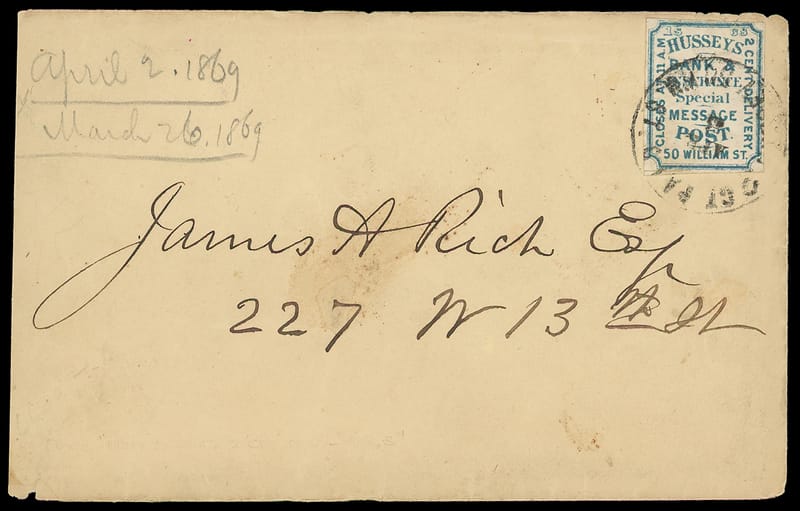 April 2. 1869
March 26. 1869
HUSSEY'S
BANK &
INSURANCE
Special
MESSAGE
POST.
50 WILLIAM ST.
CLOSES AT 11 AM
2 CENT DELIVERY
James A Rich Esq
227 W 13th St